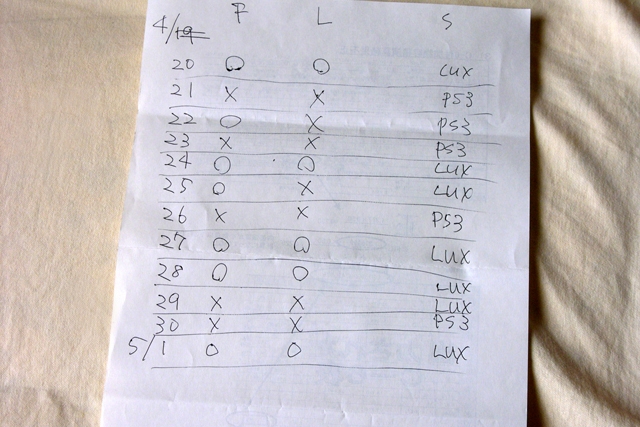 F L S
4/19
20 O O LUX
21 X X PS3
22 O X PS3
23 X X PS3
24 O O LUX
25 O X LUX
26 X X PS3
27 O O LUX
28 O O LUX
29 X X LUX
30 X X PS3
5/1 O O LUX